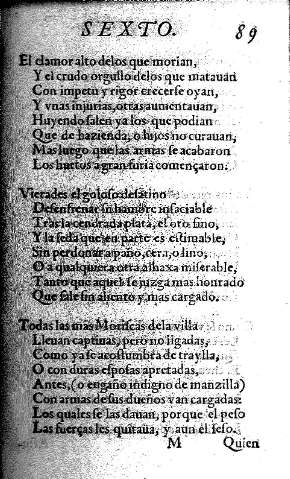 SEXTO. 89
El clamor alto delos que morian,
Y el crudo orgullo delos que matauan
Con impetu y rigor crecerse oyan,
Y vnas injurias, otras aumentauan,
Huyendo salen ya los que podian
Que de hazienda, o hijos no curauan,
Mas luego que las armas se acabaron
Los hurtos a gran furia començaron.
Vierades el goloso desatino
Desenfrenar in hambre insaciable
Tras la cendrada plata, el oro fino,
Y la seda que en parte es estimable,
Sin perdonar a paño, cera, o lino,
O a qualquiera otra alhaxa miserable,
Tanto que aquel se juzga mas honrado
Que sale sin aliento y mas cargado.
Todas las mas Moriscas dela villa
Lleuan captiuas, pero no ligadas,
Como ya se acostumbra de traylla,
O con duras esposas apretadas,
Antes, (o engaño indigno de manzilla)
Con armas de sus dueños van cargadas:
Los quales se las dauan, porque el peso
Las fuerças les quitaua, y aun el seso.
M Quien